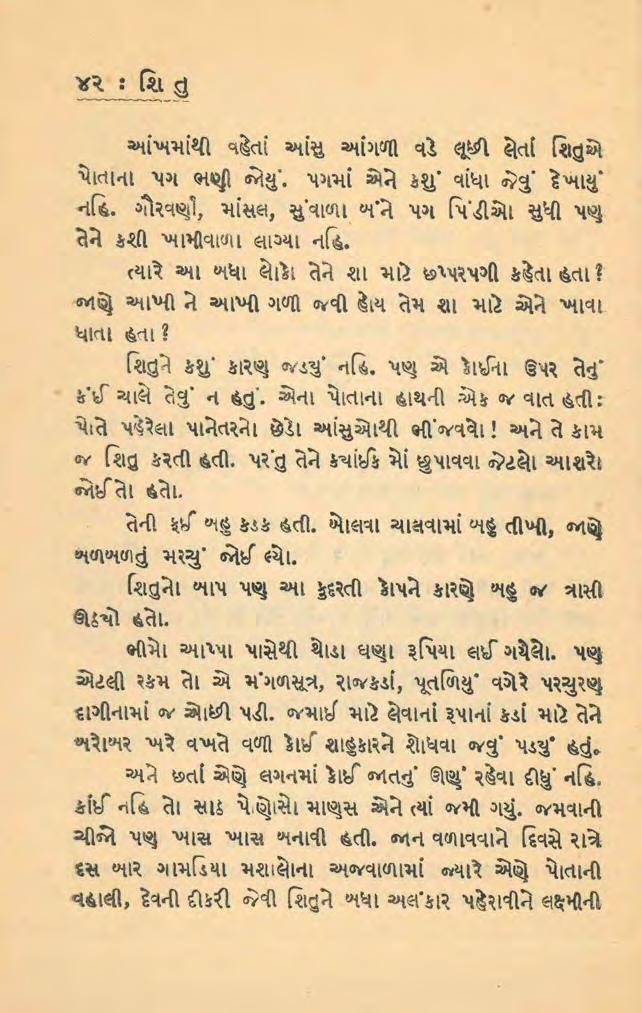 ૪૨ : શિ તુ
આંખમાંથી વહેતાં આંસુ આંગળી વડે લૂછી લેતાં શિતુએ
પોતાના પગ ભણી જોયું. પગમાં એને કશું વાંધા જેવું દેખાયું
નહિ. ગૌરવર્ણાં, માંસલ, સુંવાળા બંને પગ પિંડીઓ સુધી પણ
તેને કશી ખામીવાળા લાગ્યા નહિ.
ત્યારે આ બધા લોકો તેને શા માટે છપ્પરપગી કહેતા હતા ?
જાણે આખી ને આખી ગળી જવી હોય તેમ શા માટે એને ખાવા
ધાતા હતા ?
શિતુને કશું કારણ જડયું નહિ. પણ એ કોઈના ઉપર તેનું
કંઈ ચાલે તેવું ન હતું. એના પોતાના હાથની એક જ વાત હતી :
પોતે પહેરેલા પાનેતરનો છેડો આંસુઓથી ભીંજવવો ! અને તે કામ
જ શિતુ કરતી હતી. પરંતુ તેને કયાંઈક મોં છુપાવવા જેટલો આશરો
જોઈતો હતો.
તેની ફઈ બહુ કડક હતી. બોલવા ચાલવામાં બહુ તીખી, જાણે
બળબળતું મરચું જોઈ લ્યો.
શિતુનો બાપ પણ આ કુદરતી કોપને કારણે બહુ જ ત્રાસી
ઊઠયો હતો.
ભીમો આપ્પા પાસેથી થોડા ઘણા રૂપિયા લઈ ગયેલો. પણ
એટલી રકમ તો એ મંગળસૂત્ર, રાજકડાં, પૂતળિયું વગેરે પરચુરણ
દાગીનામાં જ ઓછી પડી. જમાઈ માટે લેવાનાં રૂપાનાં કડાં માટે તેને
બરોબર ખરે વખતે વળી કોઈ શાહુકારને શોધવા જવું પડયું હતું.
અને છતાં એણે લગનમાં કોઈ જાતનું ઊણું રહેવા દીધું નહિ.
કાંઈ નહિ તો સાઠ પોણોસો માણસ એને ત્યાં જમી ગયું. જમવાની
ચીજો પણ ખાસ ખાસ બનાવી હતી. જાન વળાવવાને દિવસે રાત્રે
દસ બાર ગામડિયા મશાલોના અજવાળામાં જ્યારે એણે પોતાની
વહાલી, દેવની દીકરી જેવી શિતુને બધા અલંકાર પહેરાવીને લક્ષ્મીની